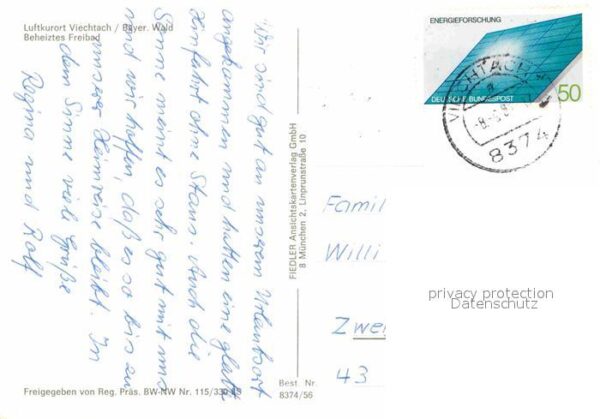 Luftkurort Viechtach / Bayer. Wald
Beheiztes Freibad
Wir sind gut an unserem Urlaubsort
angekommen und hatten eine glatte
Anfahrt ohne Staus. Auch die
Sonne meint es sehr gut mit uns
und wir hoffen, daß es so bis zu
unserer Heimreise bleibt. In
dem Sinne viele Grüße
Regina und Rolf
FIEDLER Ansichtskartenverlag GmbH
8 München 2, Linprunstraße 10
Freigegeben von Reg. Präs. BW-NW Nr. 115/330
Best. Nr.
8374/56
ENERGIEFORSCHUNG
DEUTSCHE BUNDESPOST
50
VIECHTACH
8374
Famil
Willi
Zwei
43
privacy protection
Datenschutz